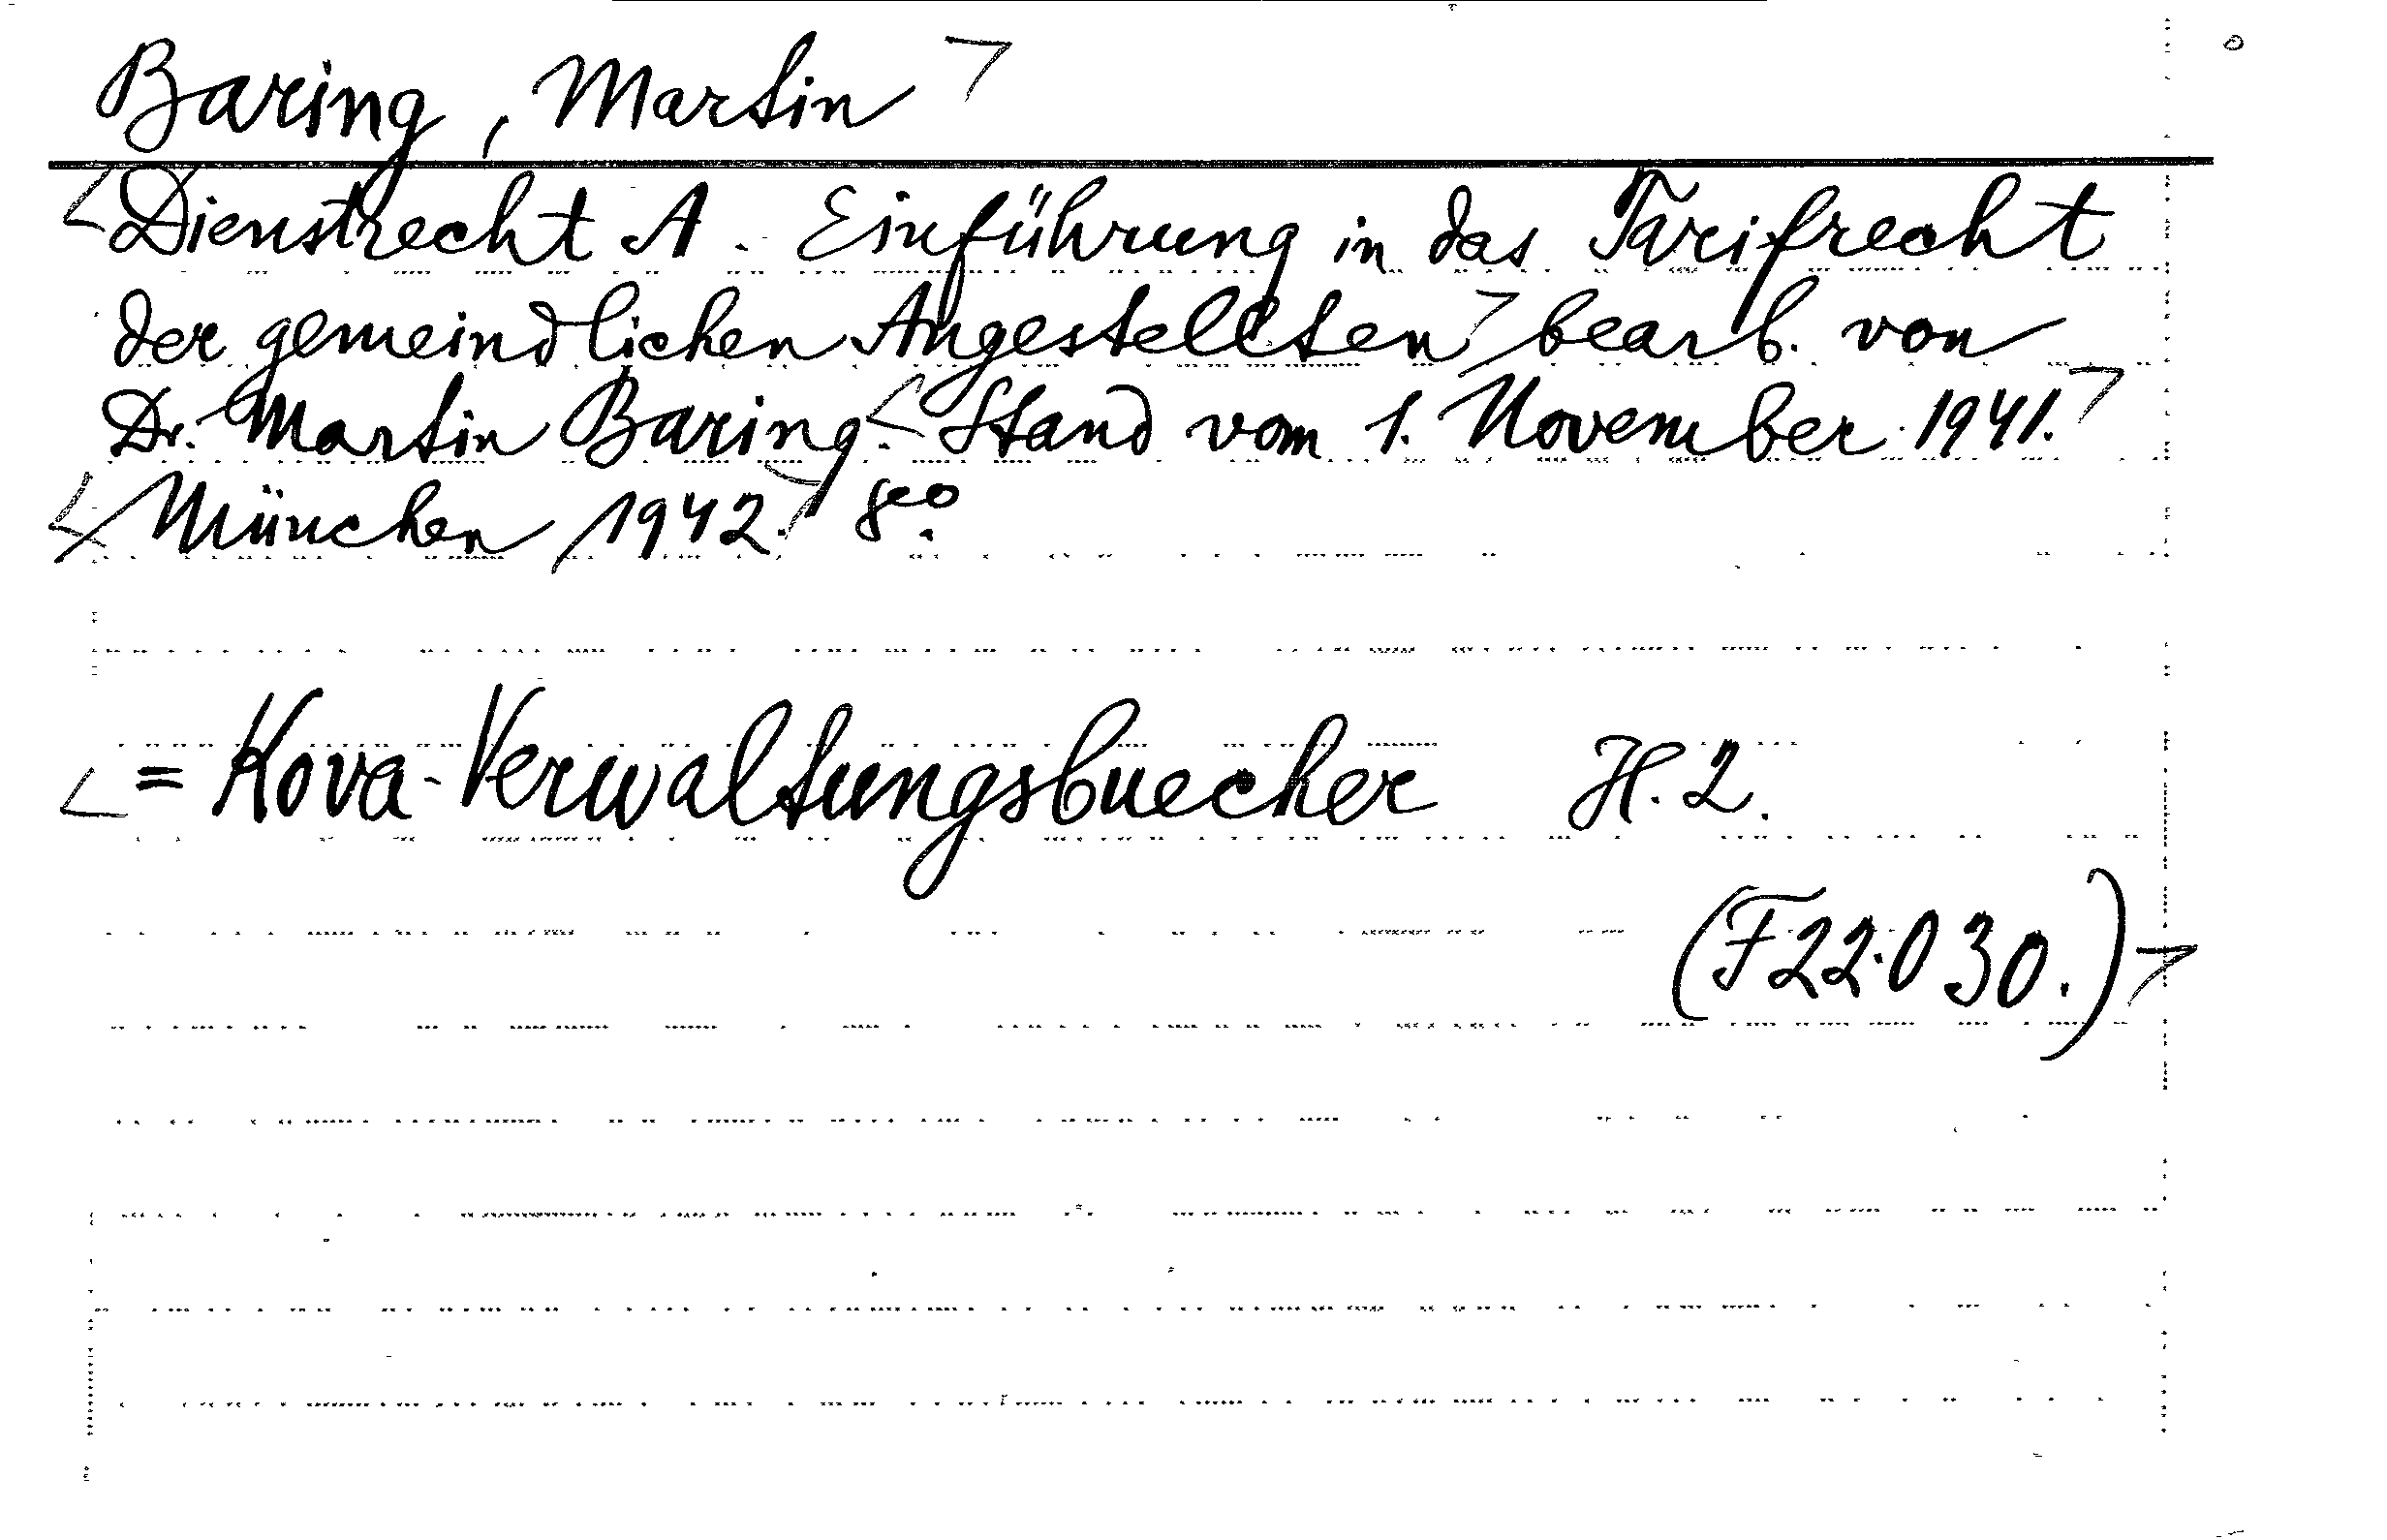 Baring, Martin
Dienstrecht A. Einführung in das Tarifrecht
der gemeindlichen Angestellten bearb. von
Dr. Martin Baring. Stand vom 1. November 1941.
München 1942. 8vo.
= Kova-Verwaltungsbuecher H. 2.
(F22.030.)